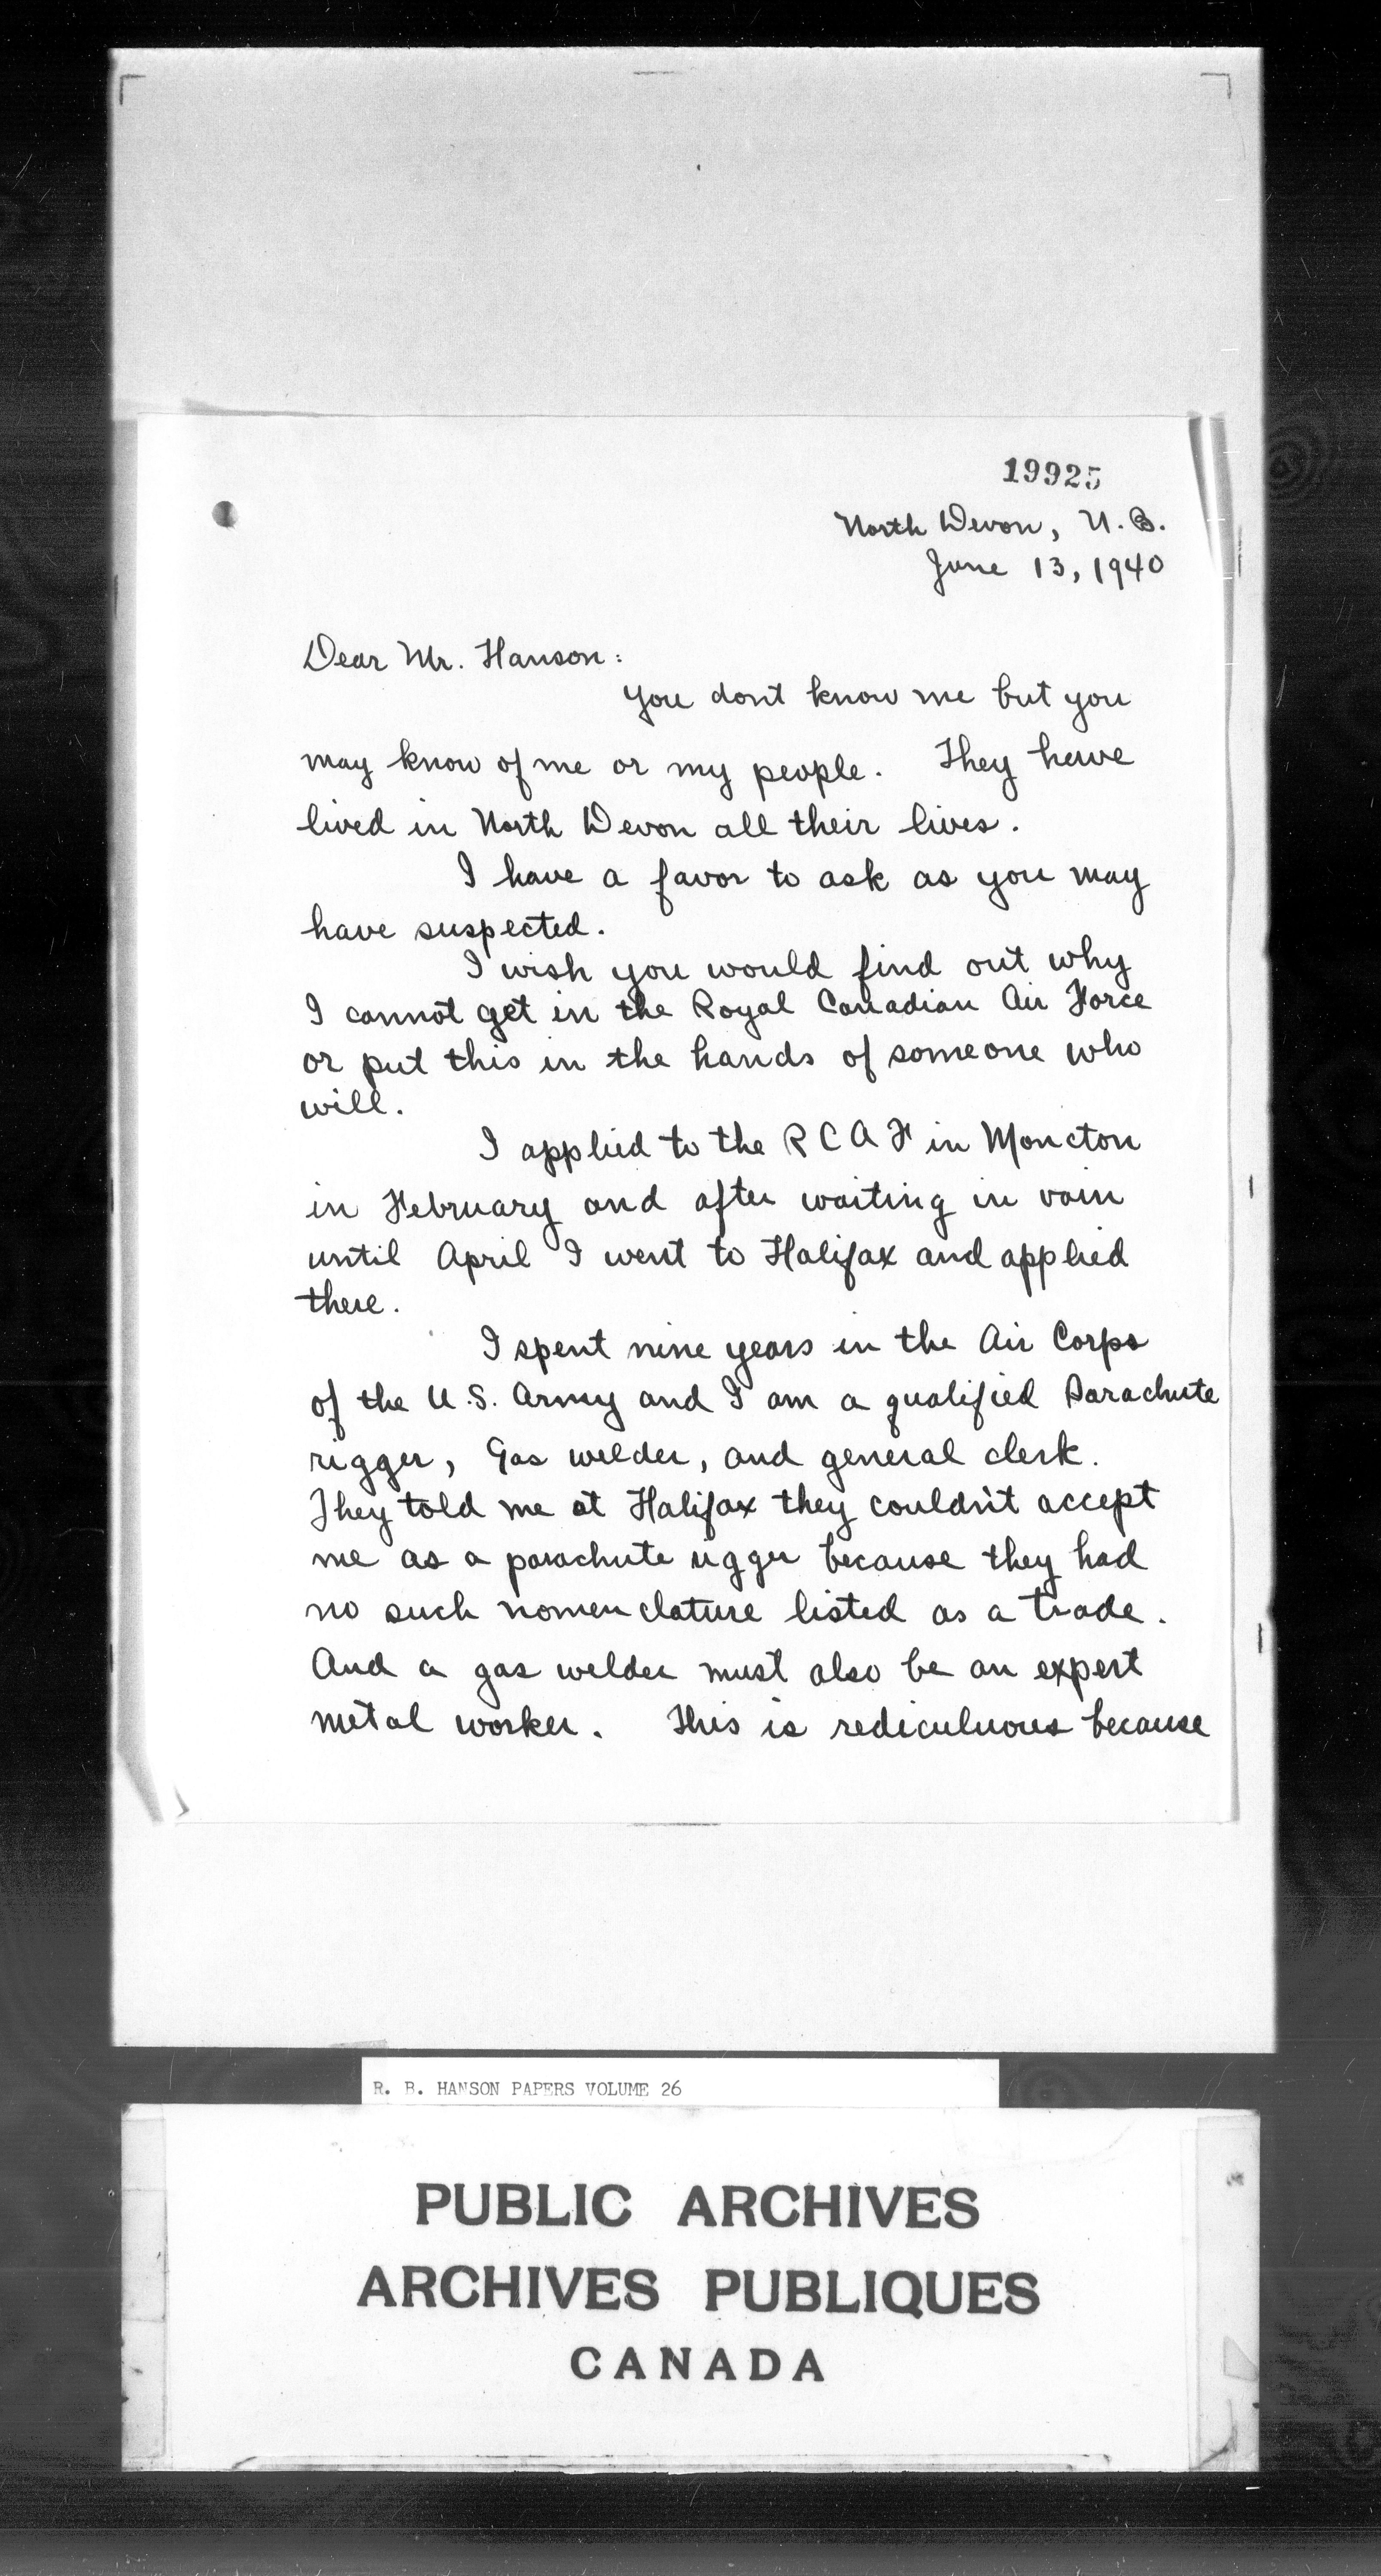 19925
North Devon, N.B.
June 13, 1940
Dear Mr. Hanson:
You don't know me but you
may know of me or my people. They have
lived in North Devon all their lives.
I have a favor to ask as you may
have suspected.
I wish you would find out why
I cannot get in the Royal Canadian Air Force
or put this in the hands of someone who
will.
I applied to the R C A F in Moncton
in February and after waiting in vain
until April I went to Halifax and applied
there.
I spent nine years in the Air Corps
of the U.S. Army and I am a qualified Parachute
rigger, Gas welder, and general clerk.
They told me at Halifax they couldn't accept
me as a parachute rigger because they had
no such nomenclature listed as a trade.
And a gas welder must also be an expert
metal worker. This is rediculuous because
R. B. HANSON PAPERS VOLUME 26
PUBLIC ARCHIVES
ARCHIVES PUBLIQUES
CANADA